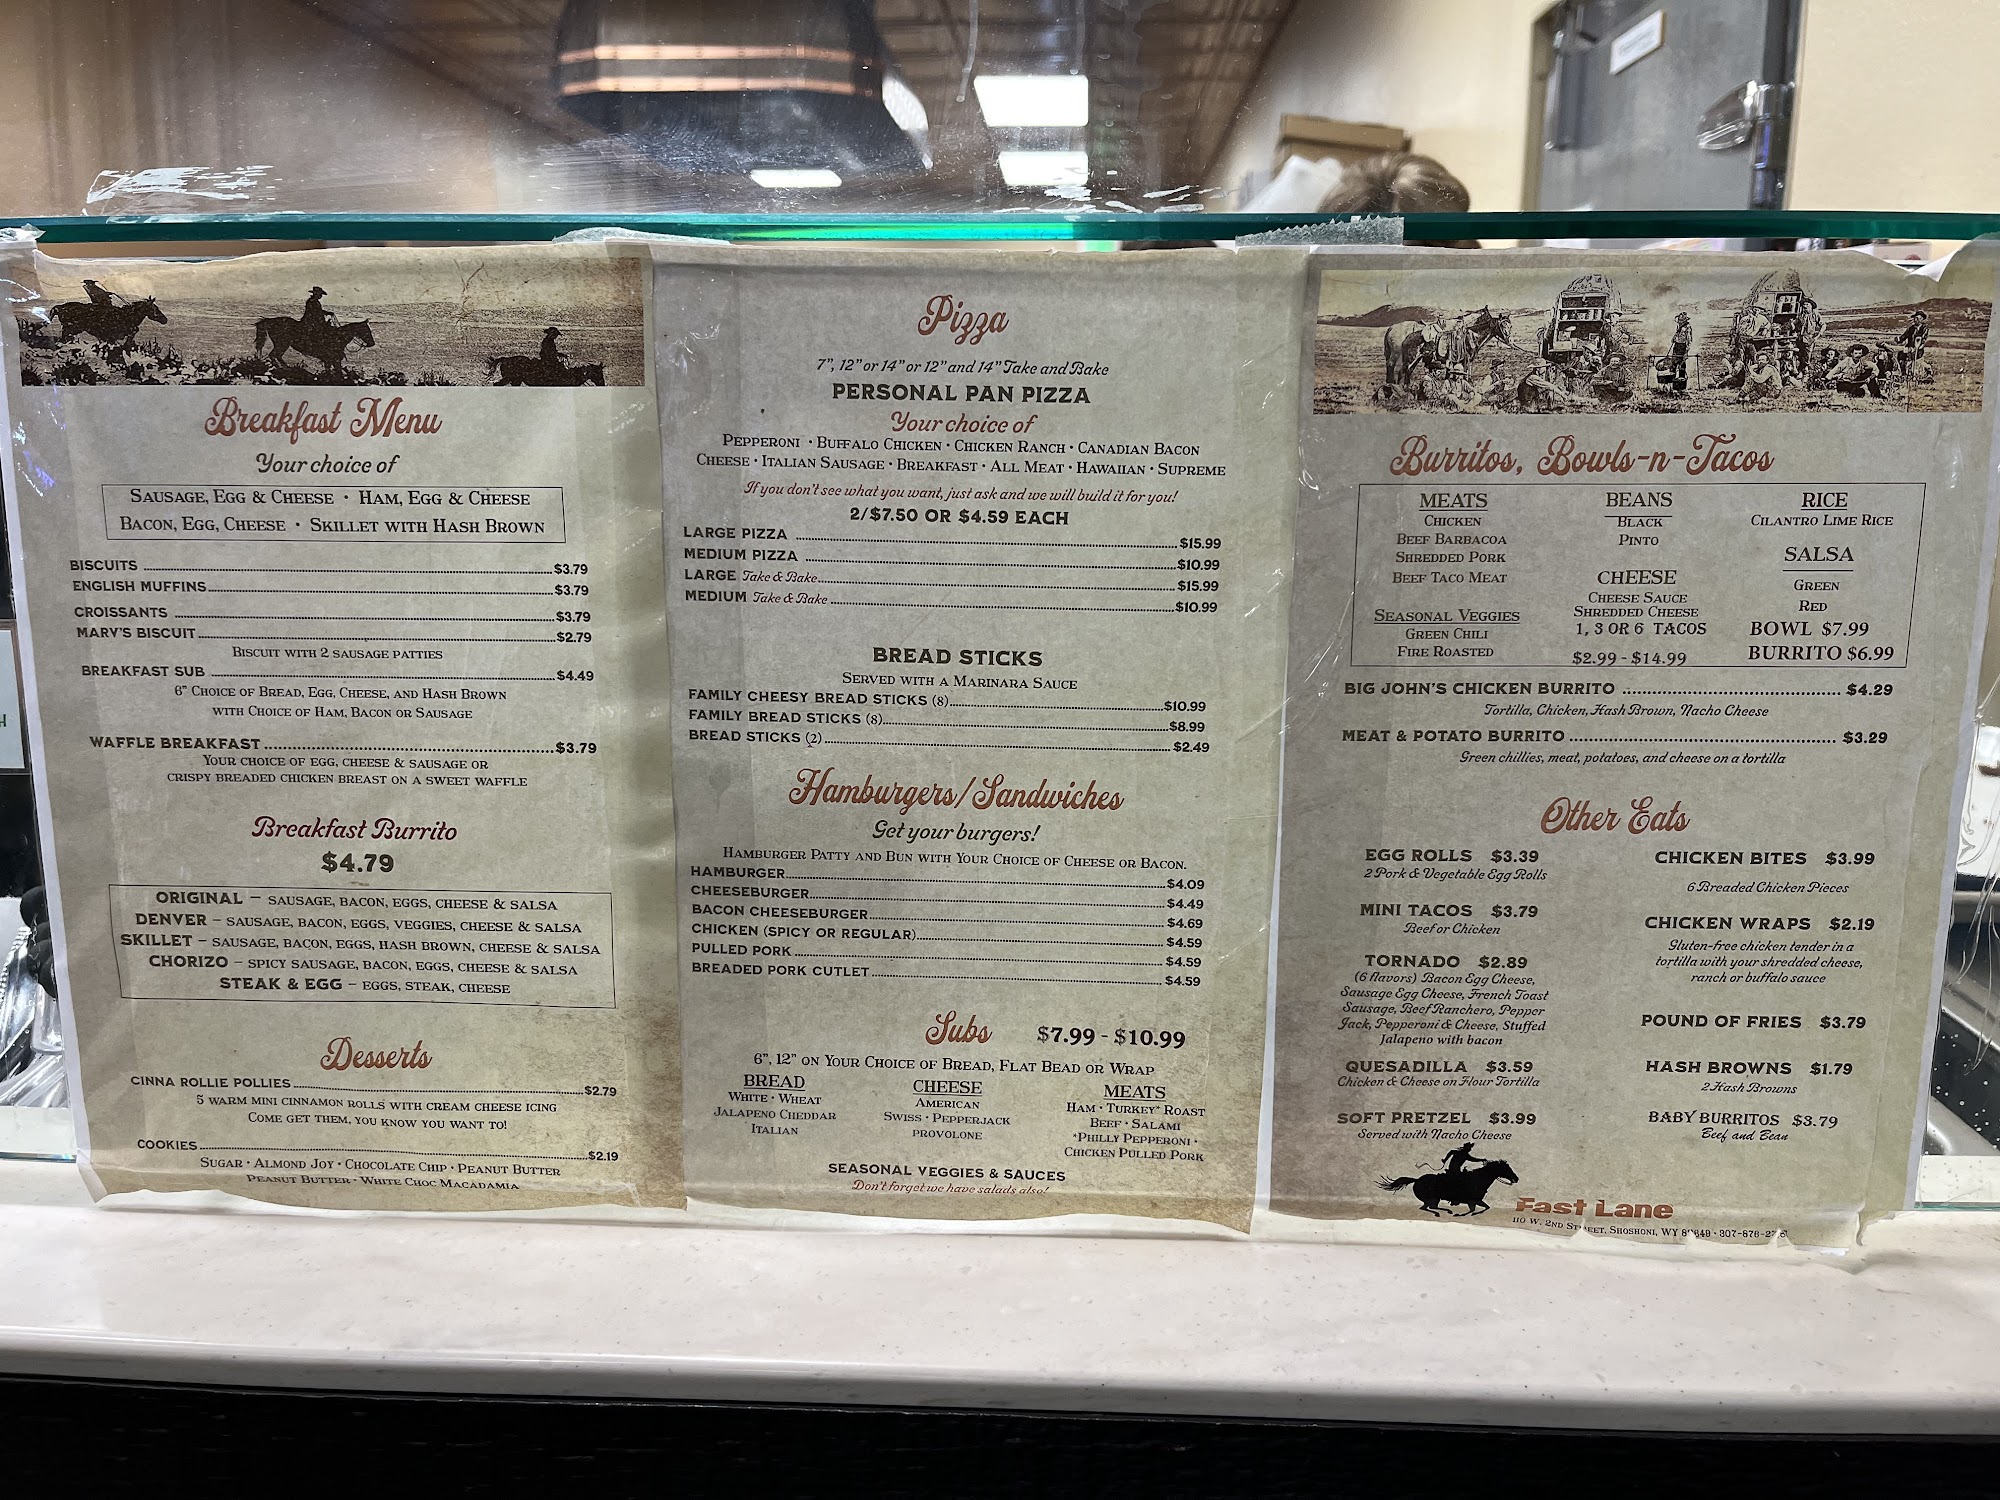 Breakfast Menu
Your choice of
Sausage, Egg & Cheese • Ham, Egg & Cheese
Bacon, Egg, Cheese • Skillet with Hash Brown
BISCUITS $3.79
ENGLISH MUFFINS $3.79
CROISSANTS $3.79
MARV'S BISCUIT $2.79
Biscuit with 2 sausage patties
BREAKFAST SUB $4.49
6" Choice of Bread, Egg, Cheese, and Hash Brown
with Choice of Ham, Bacon or Sausage
WAFFLE BREAKFAST $3.79
Your choice of egg, cheese & sausage or
crispy breaded chicken breast on a sweet waffle
Breakfast Burrito
$4.79
ORIGINAL – sausage, bacon, eggs, cheese & salsa
DENVER – sausage, bacon, eggs, veggies, cheese & salsa
SKILLET – sausage, bacon, eggs, hash brown, cheese & salsa
CHORIZO – spicy sausage, bacon, eggs, cheese & salsa
STEAK & EGG – eggs, steak, cheese
Desserts
CINNA ROLLIE POLLIES $2.79
5 warm mini cinnamon rolls with cream cheese icing
Come get them, you know you want to!
COOKIES $2.19
Sugar • Almond Joy • Chocolate Chip • Peanut Butter
Peanut Butter • White Choc Macadamia
Pizza
7", 12" or 14" or 12" and 14" Take and Bake
PERSONAL PAN PIZZA
Your choice of
Pepperoni • Buffalo Chicken • Chicken Ranch • Canadian Bacon
Cheese • Italian Sausage • Breakfast • All Meat • Hawaiian • Supreme
If you don't see what you want, just ask and we will build it for you!
2/$7.50 OR $4.59 EACH
LARGE PIZZA $15.99
MEDIUM PIZZA $10.99
LARGE Take & Bake $15.99
MEDIUM Take & Bake $10.99
BREAD STICKS
Served with a Marinara Sauce
FAMILY CHEESY BREAD STICKS (8) $10.99
FAMILY BREAD STICKS (8) $8.99
BREAD STICKS (2) $2.49
Hamburgers/Sandwiches
Get your burgers!
Hamburger Patty and Bun with Your Choice of Cheese or Bacon.
HAMBURGER $4.09
CHEESEBURGER $4.49
BACON CHEESEBURGER $4.69
CHICKEN (SPICY OR REGULAR) $4.59
PULLED PORK $4.59
BREADED PORK CUTLET $4.59
Subs $7.99 - $10.99
6", 12" on Your Choice of Bread, Flat Bead or Wrap
BREAD
White • Wheat
Jalapeno Cheddar
Italian
CHEESE
American
Swiss • Pepperjack
provolone
MEATS
Ham • Turkey* Roast
Beef • Salami
*Philly Pepperoni •
Chicken Pulled Pork
SEASONAL VEGGIES & SAUCES
Don't forget we have salads also!
Burritos, Bowls-n-Tacos
MEATS
Chicken
Beef Barbacoa
Shredded Pork
Beef Taco Meat
Seasonal Veggies
Green Chili
Fire Roasted
BEANS
Black
Pinto
CHEESE
Cheese Sauce
Shredded Cheese
1, 3 OR 6 TACOS
$2.99 - $14.99
RICE
Cilantro Lime Rice
SALSA
Green
Red
BOWL $7.99
BURRITO $6.99
BIG JOHN'S CHICKEN BURRITO $4.29
Tortilla, Chicken, Hash Brown, Nacho Cheese
MEAT & POTATO BURRITO $3.29
Green chillies, meat, potatoes, and cheese on a tortilla
Other Eats
EGG ROLLS $3.39
2 Pork & Vegetable Egg Rolls
MINI TACOS $3.79
Beef or Chicken
TORNADO $2.89
(6 flavors) Bacon Egg Cheese,
Sausage Egg Cheese, French Toast
Sausage, Beef Ranchero, Pepper
Jack, Pepperoni & Cheese, Stuffed
Jalapeno with bacon
QUESADILLA $3.59
Chicken & Cheese on Flour Tortilla
SOFT PRETZEL $3.99
Served with Nacho Cheese
CHICKEN BITES $3.99
6 Breaded Chicken Pieces
CHICKEN WRAPS $2.19
Gluten-free chicken tender in a
tortilla with your shredded cheese,
ranch or buffalo sauce
POUND OF FRIES $3.79
HASH BROWNS $1.79
2 Hash Browns
BABY BURRITOS $3.79
Beef and Bean
Fast Lane
110 W. 2nd Street, Shoshoni, WY